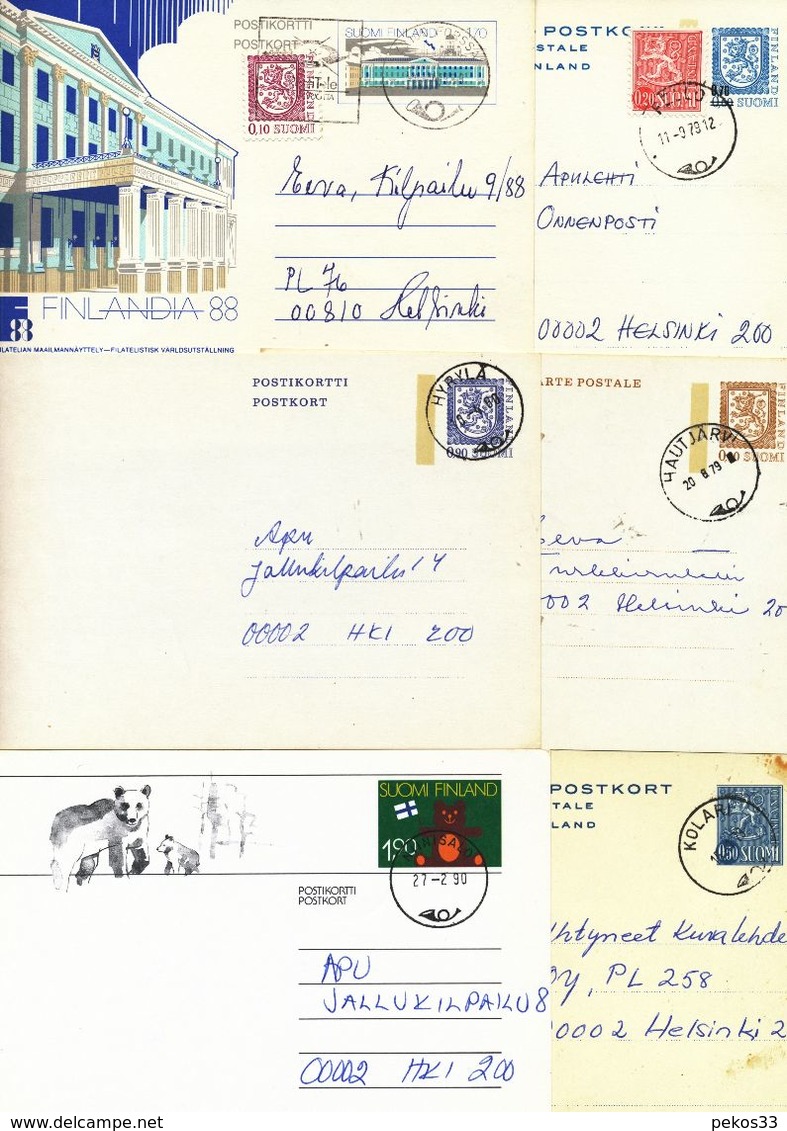 POSTIKORTTI
POSTKORT
SUOMI FINLAND 1,70
0,10 SUOMI
Eeva, Kilpailu 9/88
PL 76
00810 Helsinki
FINLANDIA 88
88
ILATELIAN MAAILMANNÄYTTELY—FILATELISTISK VÄRLDSUTSTÄLLNING
POSTKO
STALE
NLAND
0,20 SUOMI
FINLAND
0,70
0,60 SUOMI
11-9 79 12
APULEHTI
ONNENPOSTI
00002 HELSINKI 200
POSTIKORTTI
POSTKORT
HYRYLÄ
FINLAND
0,90 SUOMI
Apu
Jallukilpailu 14
00002 HKI 200
ARTE POSTALE
FINLAND
SUOMI
HAUTJÄRVI
20 8.79
Eeva
002 Helsinki 20
SUOMI FINLAND
1,90
27-2 90
POSTIKORTTI
POSTKORT
APU
JALLUKILPAILU 8
00002 HKI 200
POSTKORT
TALE
LAND
KOLARI
0,50 SUOMI
Yhtyneet Kuvalehde
OY, PL 258
00002 Helsinki 2
www.delcampe.net
pekos33